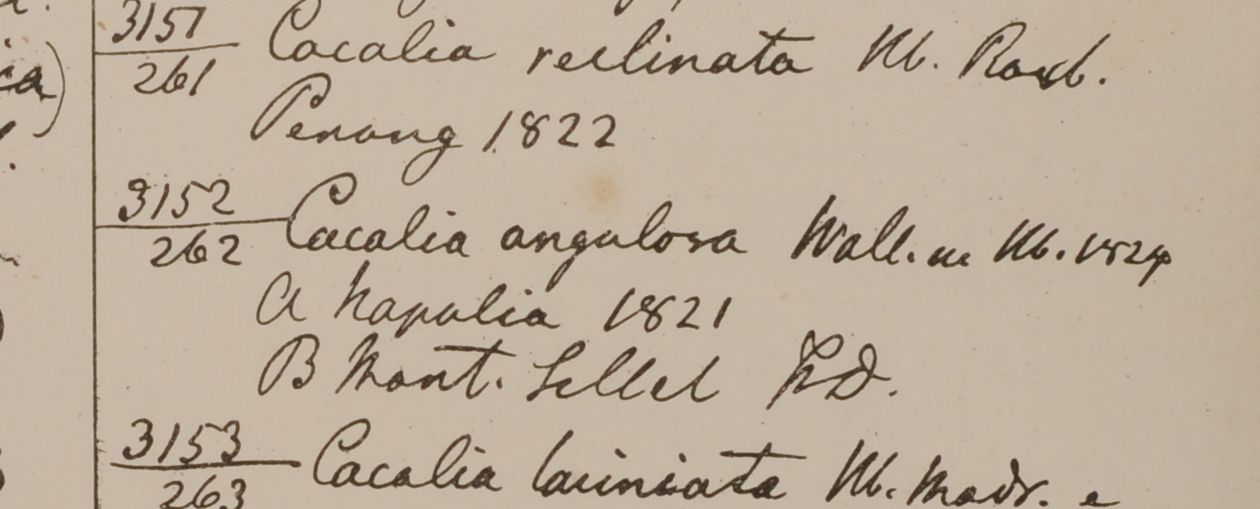 3151 Cacalia reclinata Hb. Roxb.
261
Penang 1822
3152 Cacalia angulosa Wall. in Hb. 1824
262
A Napalia 1821
B Mont. Sillet F.D.
3153 Cacalia laciniata Hb. Madr. e
263